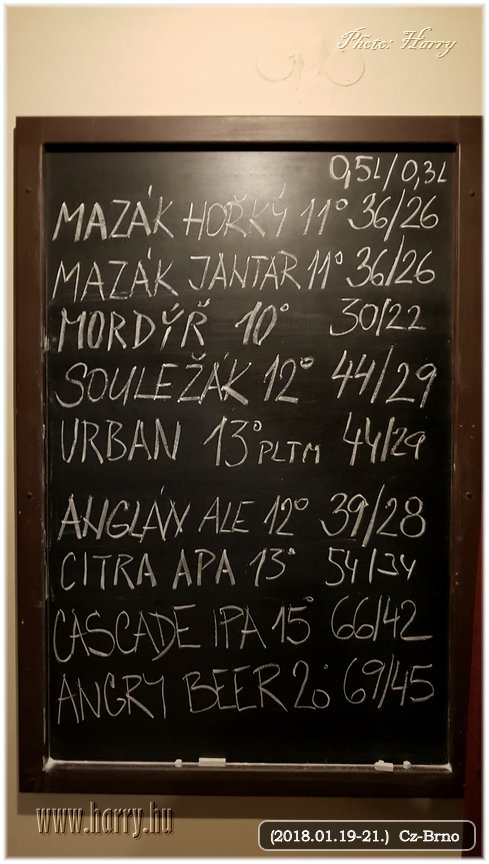 Photo: Harry
0,5L/0,3L
MAZÁK HOŘKÝ 11° 36/26
MAZÁK JANTAR 11° 36/26
MORDÝŘ 10° 30/22
SOULEŽÁK 12° 44/29
URBAN 13° PLTM 44/29
ANGLÁN ALE 12° 39/28
CITRA APA 13° 54/34
CASCADE IPA 15° 66/42
ANGRY BEER 20° 69/45
www.harry.hu
(2018.01.19-21.) Cz-Brno